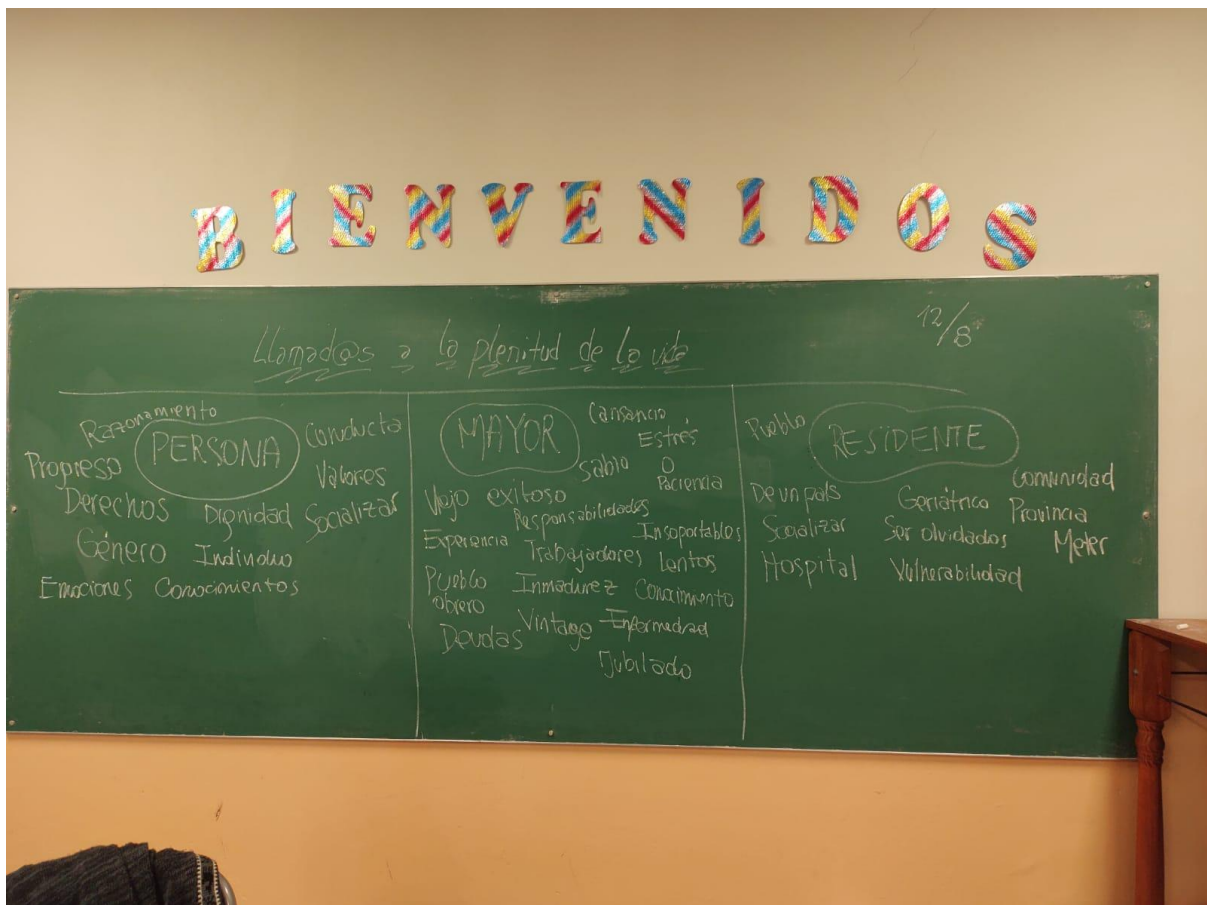 BIENVENIDOS
12/8
Llamad@s a la plenitud de la vida
PERSONA
Razonamiento
Conducta
Progreso
Valores
Derechos
Dignidad
Socializar
Género
Individuo
Emociones
Conocimientos
MAYOR
Cansancio
Estrés
Sabio
O
Paciencia
Viejo
exitoso
Responsabilidades
Experiencia
Insoportables
Trabajadores
Lentos
Pueblo
obrero
Inmadurez
Conocimiento
Vintage
Enfermedad
Deudas
Jubilado
RESIDENTE
Pueblo
Comunidad
De un país
Geriátrico
Provincia
Socializar
Ser olvidados
Hospital
Vulnerabilidad